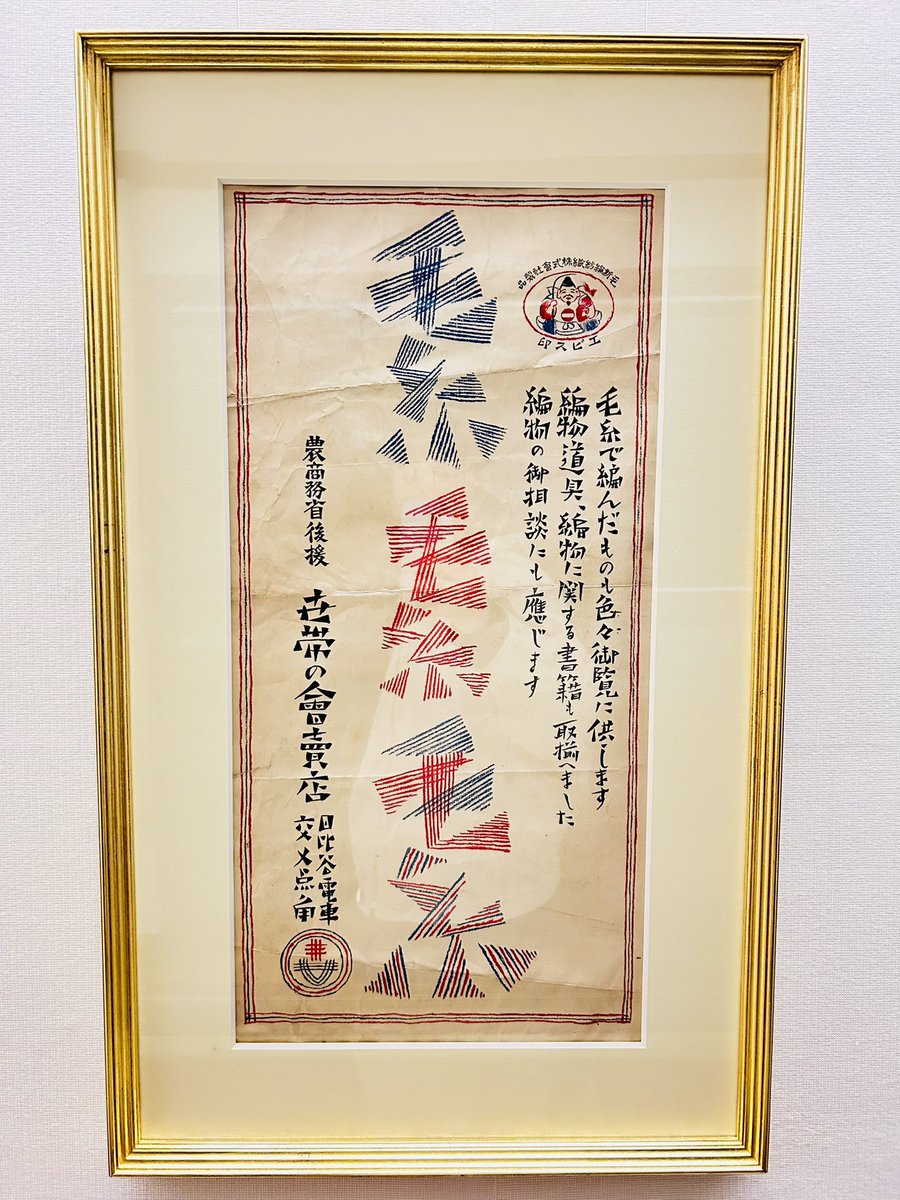 毛斯綸紡織株式會社製品
エビス印
毛糸で編んだものも色々御覧に供します
編物道具、編物に関する書籍も取揃へました
編物の御相談にも應じます
毛糸
毛糸
毛糸
農商務省後援
世帯の會賣店
日比谷電車
交叉点角